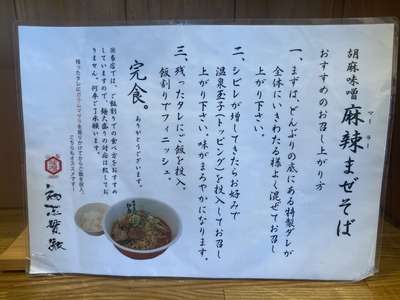 胡麻味噌 麻辣まぜそば
マー ラー
おすすめのお召し上がり方
一、まずは、どんぶりの底にある特製ダレが
全体にいきわたる様よく混ぜてお召し
上がり下さい。
二、シビレが増してきたらお好みで
温泉玉子(トッピング)を投入してお召し
上がり下さい。味がまろやかになります。
三、残ったタレにご飯を投入。
飯割りでフィニッシュ。
完食。
ありがとうございます。
※当店では、ご飯割りでの食べ方をおすすめ
していますので、麺大盛りの対応は致してお
りません。何卒ご了承願います。
残ったタレにガラムマサラを振りかけてからご飯を投入。
こちらもオススメです!